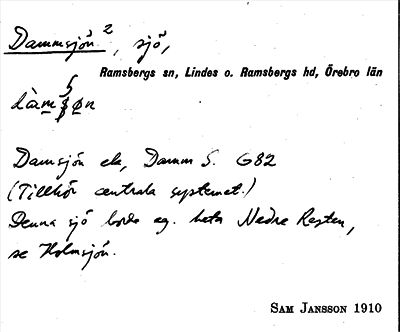 Dammsjön 2, sjö,
Ramsbergs sn, Lindes o. Ramsbergs hd, Örebro län
dàmʂøn
Damsjön ek, Damm S. G82
(Tillhör centrala systemet.)
Denna sjö borde eg. heta Nedre Resten,
se Holmsjön.
SAM JANSSON 1910